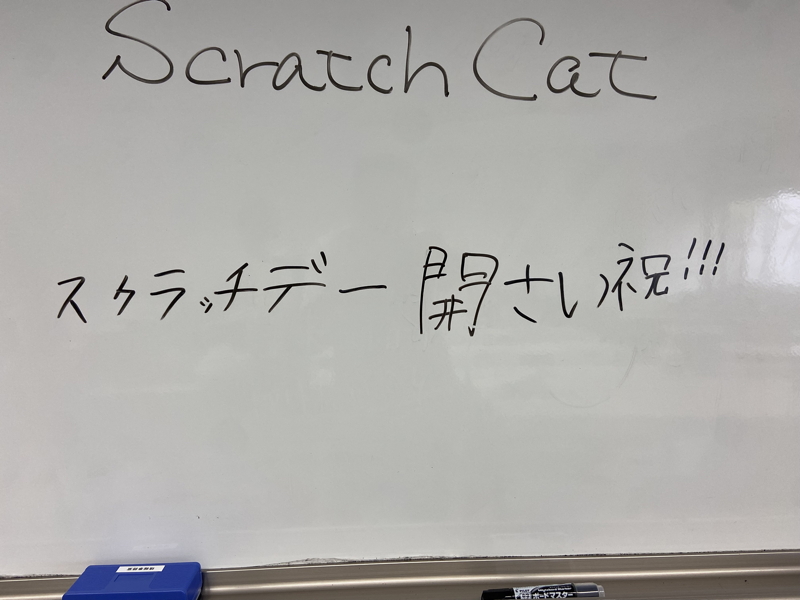 Scratch Cat
スクラッチデー 開さい祝!!!
ボードマスター